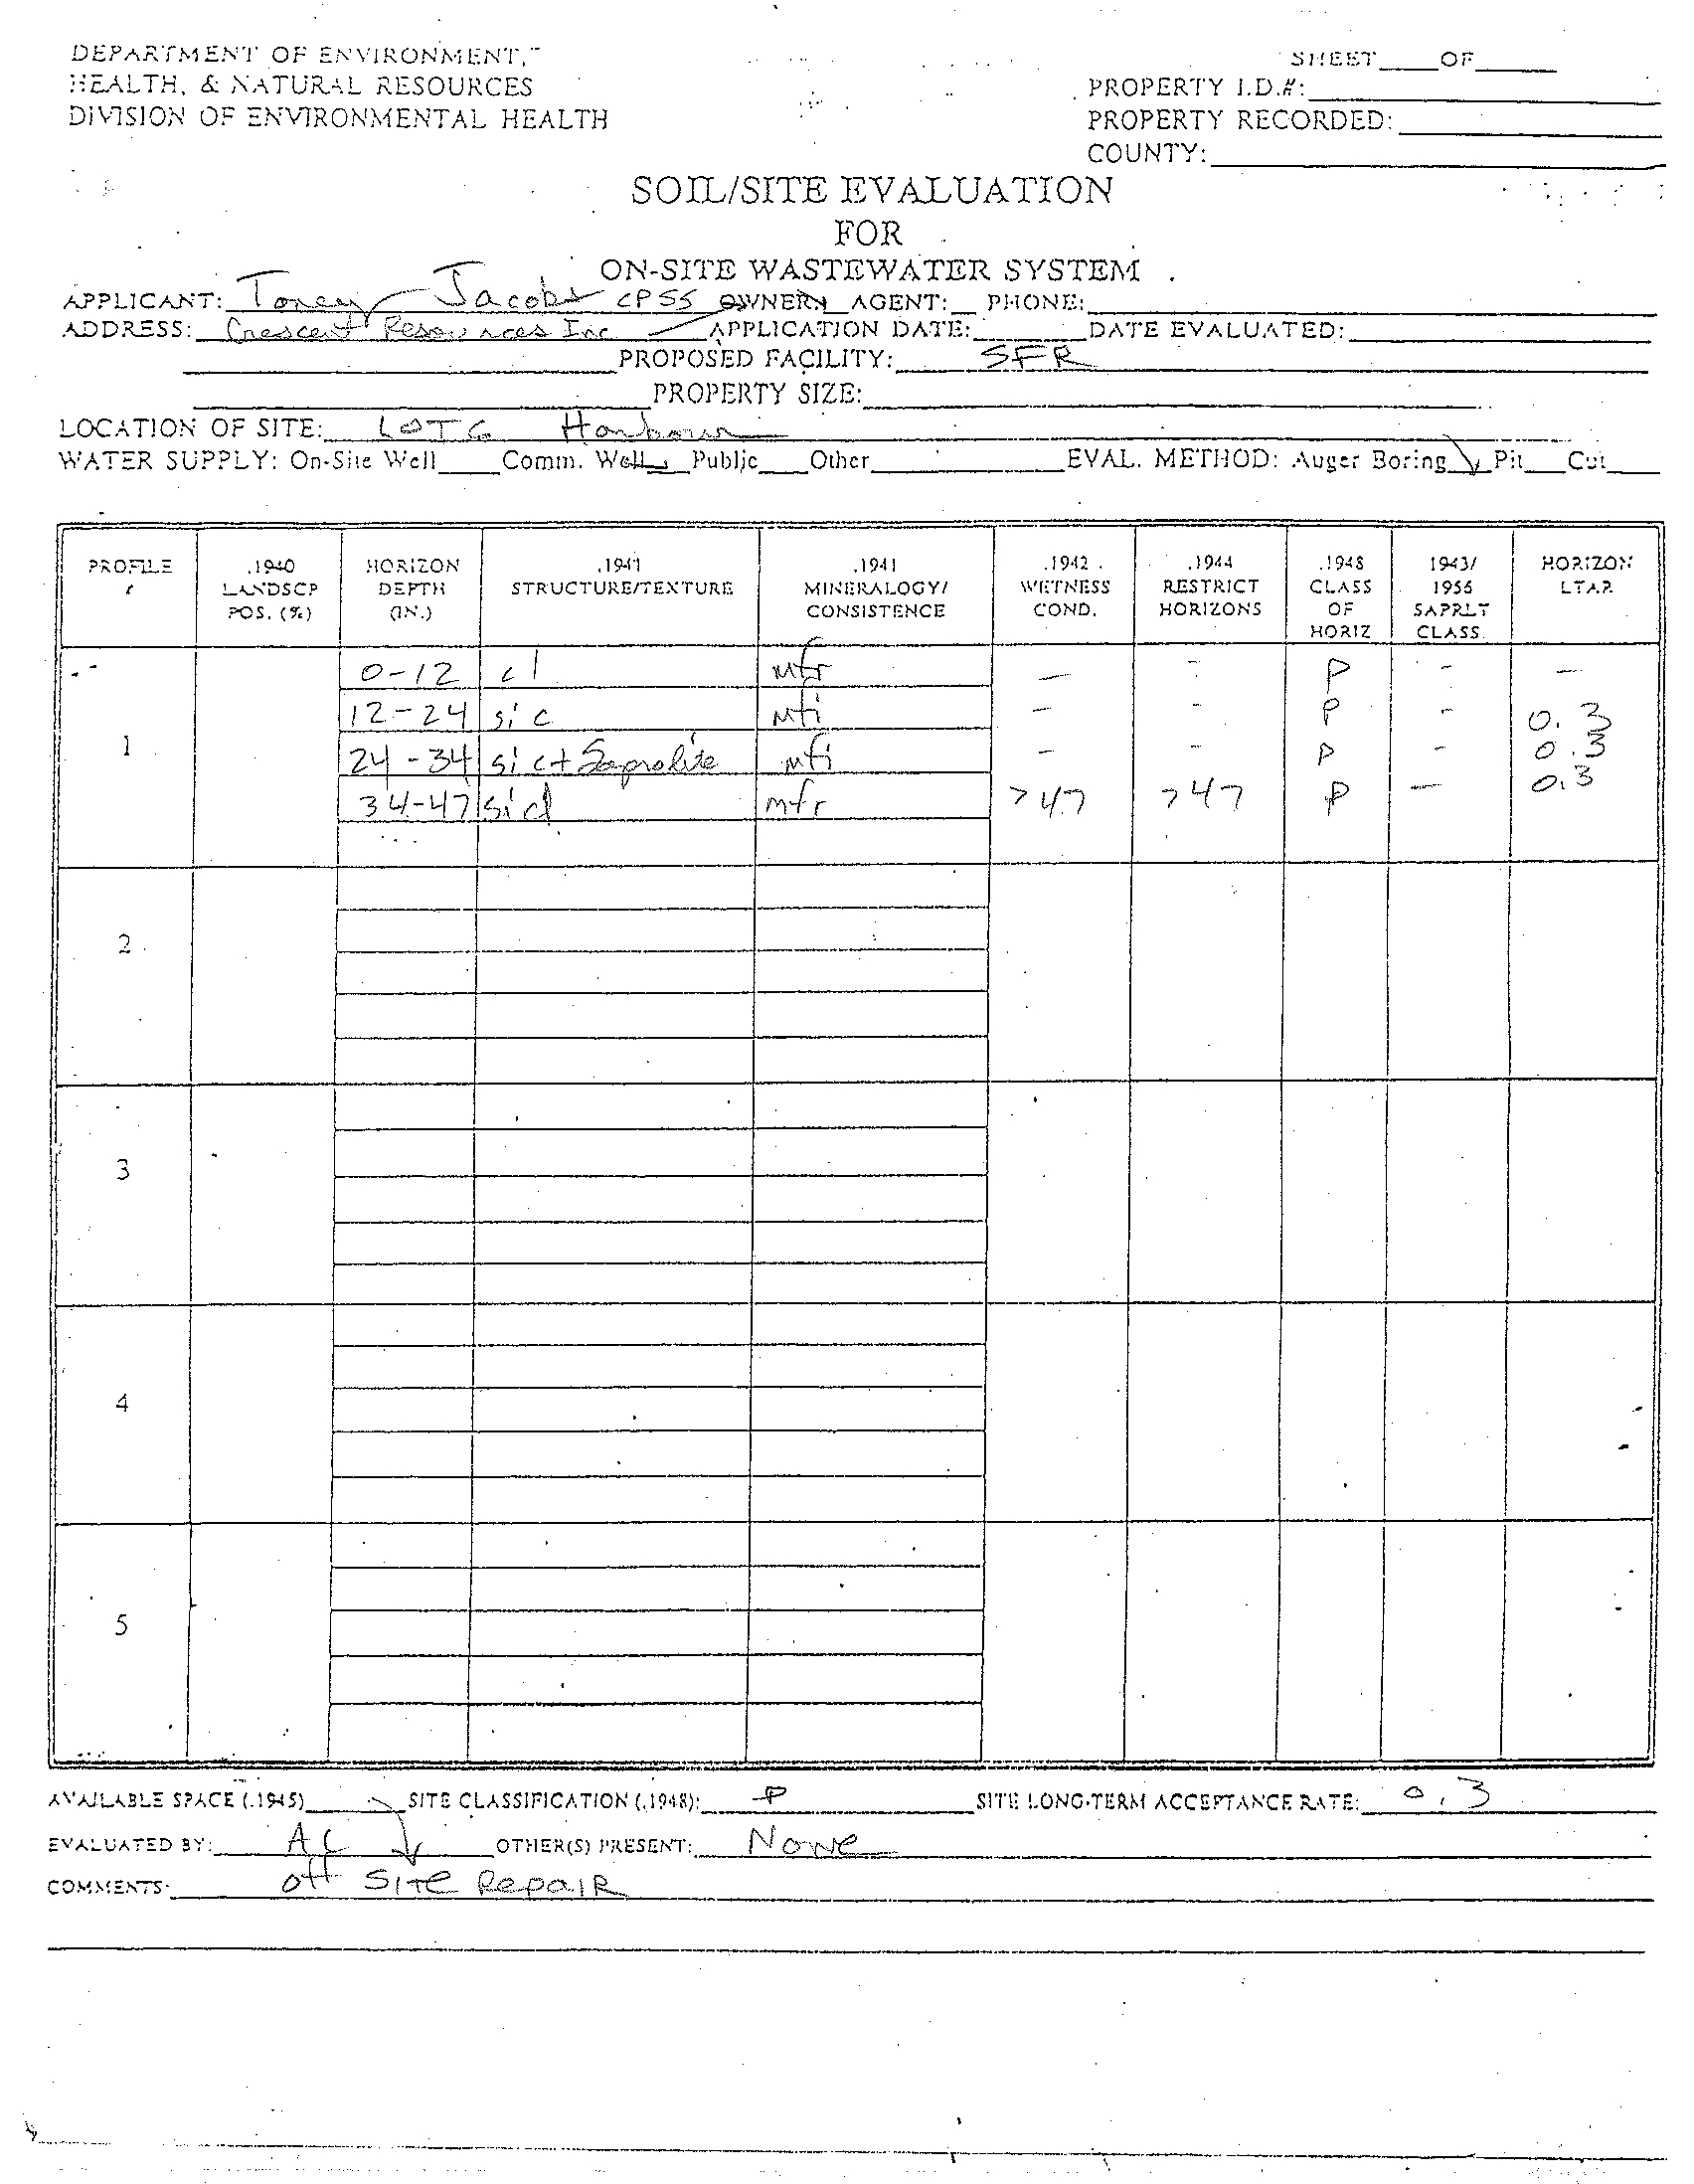 DEPARTMENT OF ENVIRONMENT,
HEALTH, & NATURAL RESOURCES
DIVISION OF ENVIRONMENTAL HEALTH
SHEET____OF____
PROPERTY I.D.#:
PROPERTY RECORDED:
COUNTY:
SOIL/SITE EVALUATION
FOR
ON-SITE WASTEWATER SYSTEM
APPLICANT: Toney Jacobs CPSS OWNER AGENT: PHONE:
ADDRESS: Crescent Resources Inc APPLICATION DATE: DATE EVALUATED:
PROPOSED FACILITY: SFR
PROPERTY SIZE:
LOCATION OF SITE: LOT 6 Harbour
WATER SUPPLY: On-Site Well Comm. Well Public Other EVAL. METHOD: Auger Boring Pit Cut
PROFILE #
.1940 LANDSCP POS. (%)
HORIZON DEPTH (IN.)
.1941 STRUCTURE/TEXTURE
.1941 MINERALOGY/ CONSISTENCE
.1942 WETNESS COND.
.1944 RESTRICT HORIZONS
.1948 CLASS OF HORIZ
1943/ 1956 SAPRLT CLASS
HORIZON LTAR
1
0-12 cl mfr — - P - —
12-24 sic mfi — - P - 0.3
24-34 sic + Saprolite mfi - - P - 0.3
34-47 sicl mfr >47 >47 P — 0.3
2
3
4
5
AVAILABLE SPACE (.1945) SITE CLASSIFICATION (.1948): P SITE LONG-TERM ACCEPTANCE RATE: 0.3
EVALUATED BY: OTHER(S) PRESENT: None
COMMENTS: Off SITE RepaiR